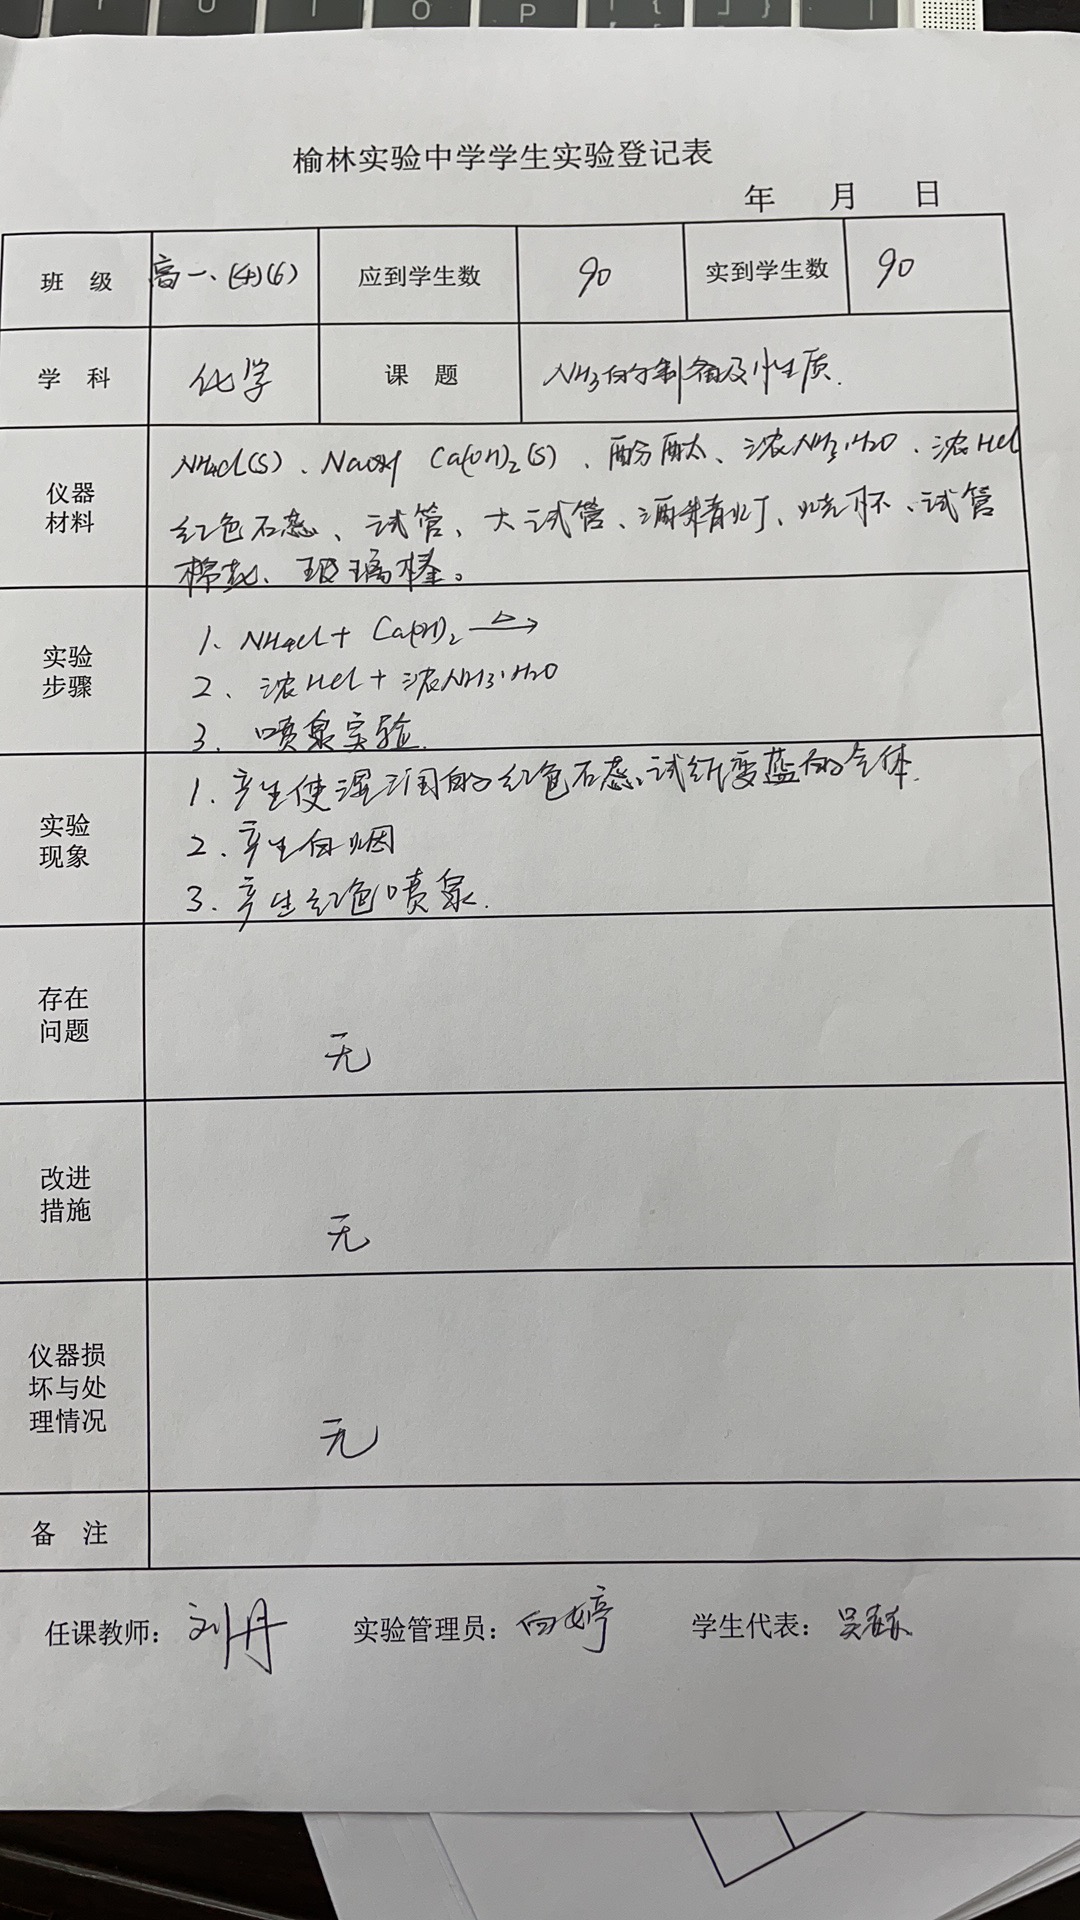 榆林实验中学学生实验登记表
年 月 日
班 级 高一、(4)(6) 应到学生数 90 实到学生数 90
学 科 化学 课 题 NH3的制备及性质.
仪器
材料
NH4Cl(s)、NaOH Ca(OH)2(s)、酚酞、浓NH3·H2O、浓HCl
红色石蕊、试管、大试管、酒精灯、烧杯、试管
棉花、玻璃棒。
实验
步骤
1、NH4Cl + Ca(OH)2 —△→
2、浓HCl + 浓NH3·H2O
3. 喷泉实验.
实验
现象
1. 产生使湿润的红色石蕊试纸变蓝的气体.
2. 产生白烟
3. 产生红色喷泉.
存在
问题
无
改进
措施
无
仪器损
坏与处
理情况
无
备 注
任课教师: 刘丹 实验管理员: 向婷 学生代表: 吴